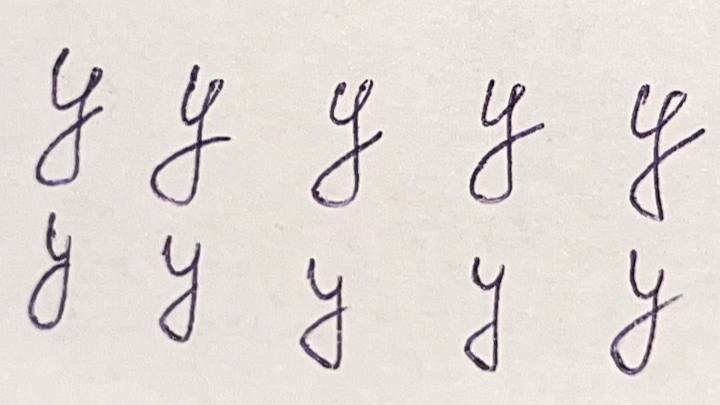 y y y y y
y y y y y